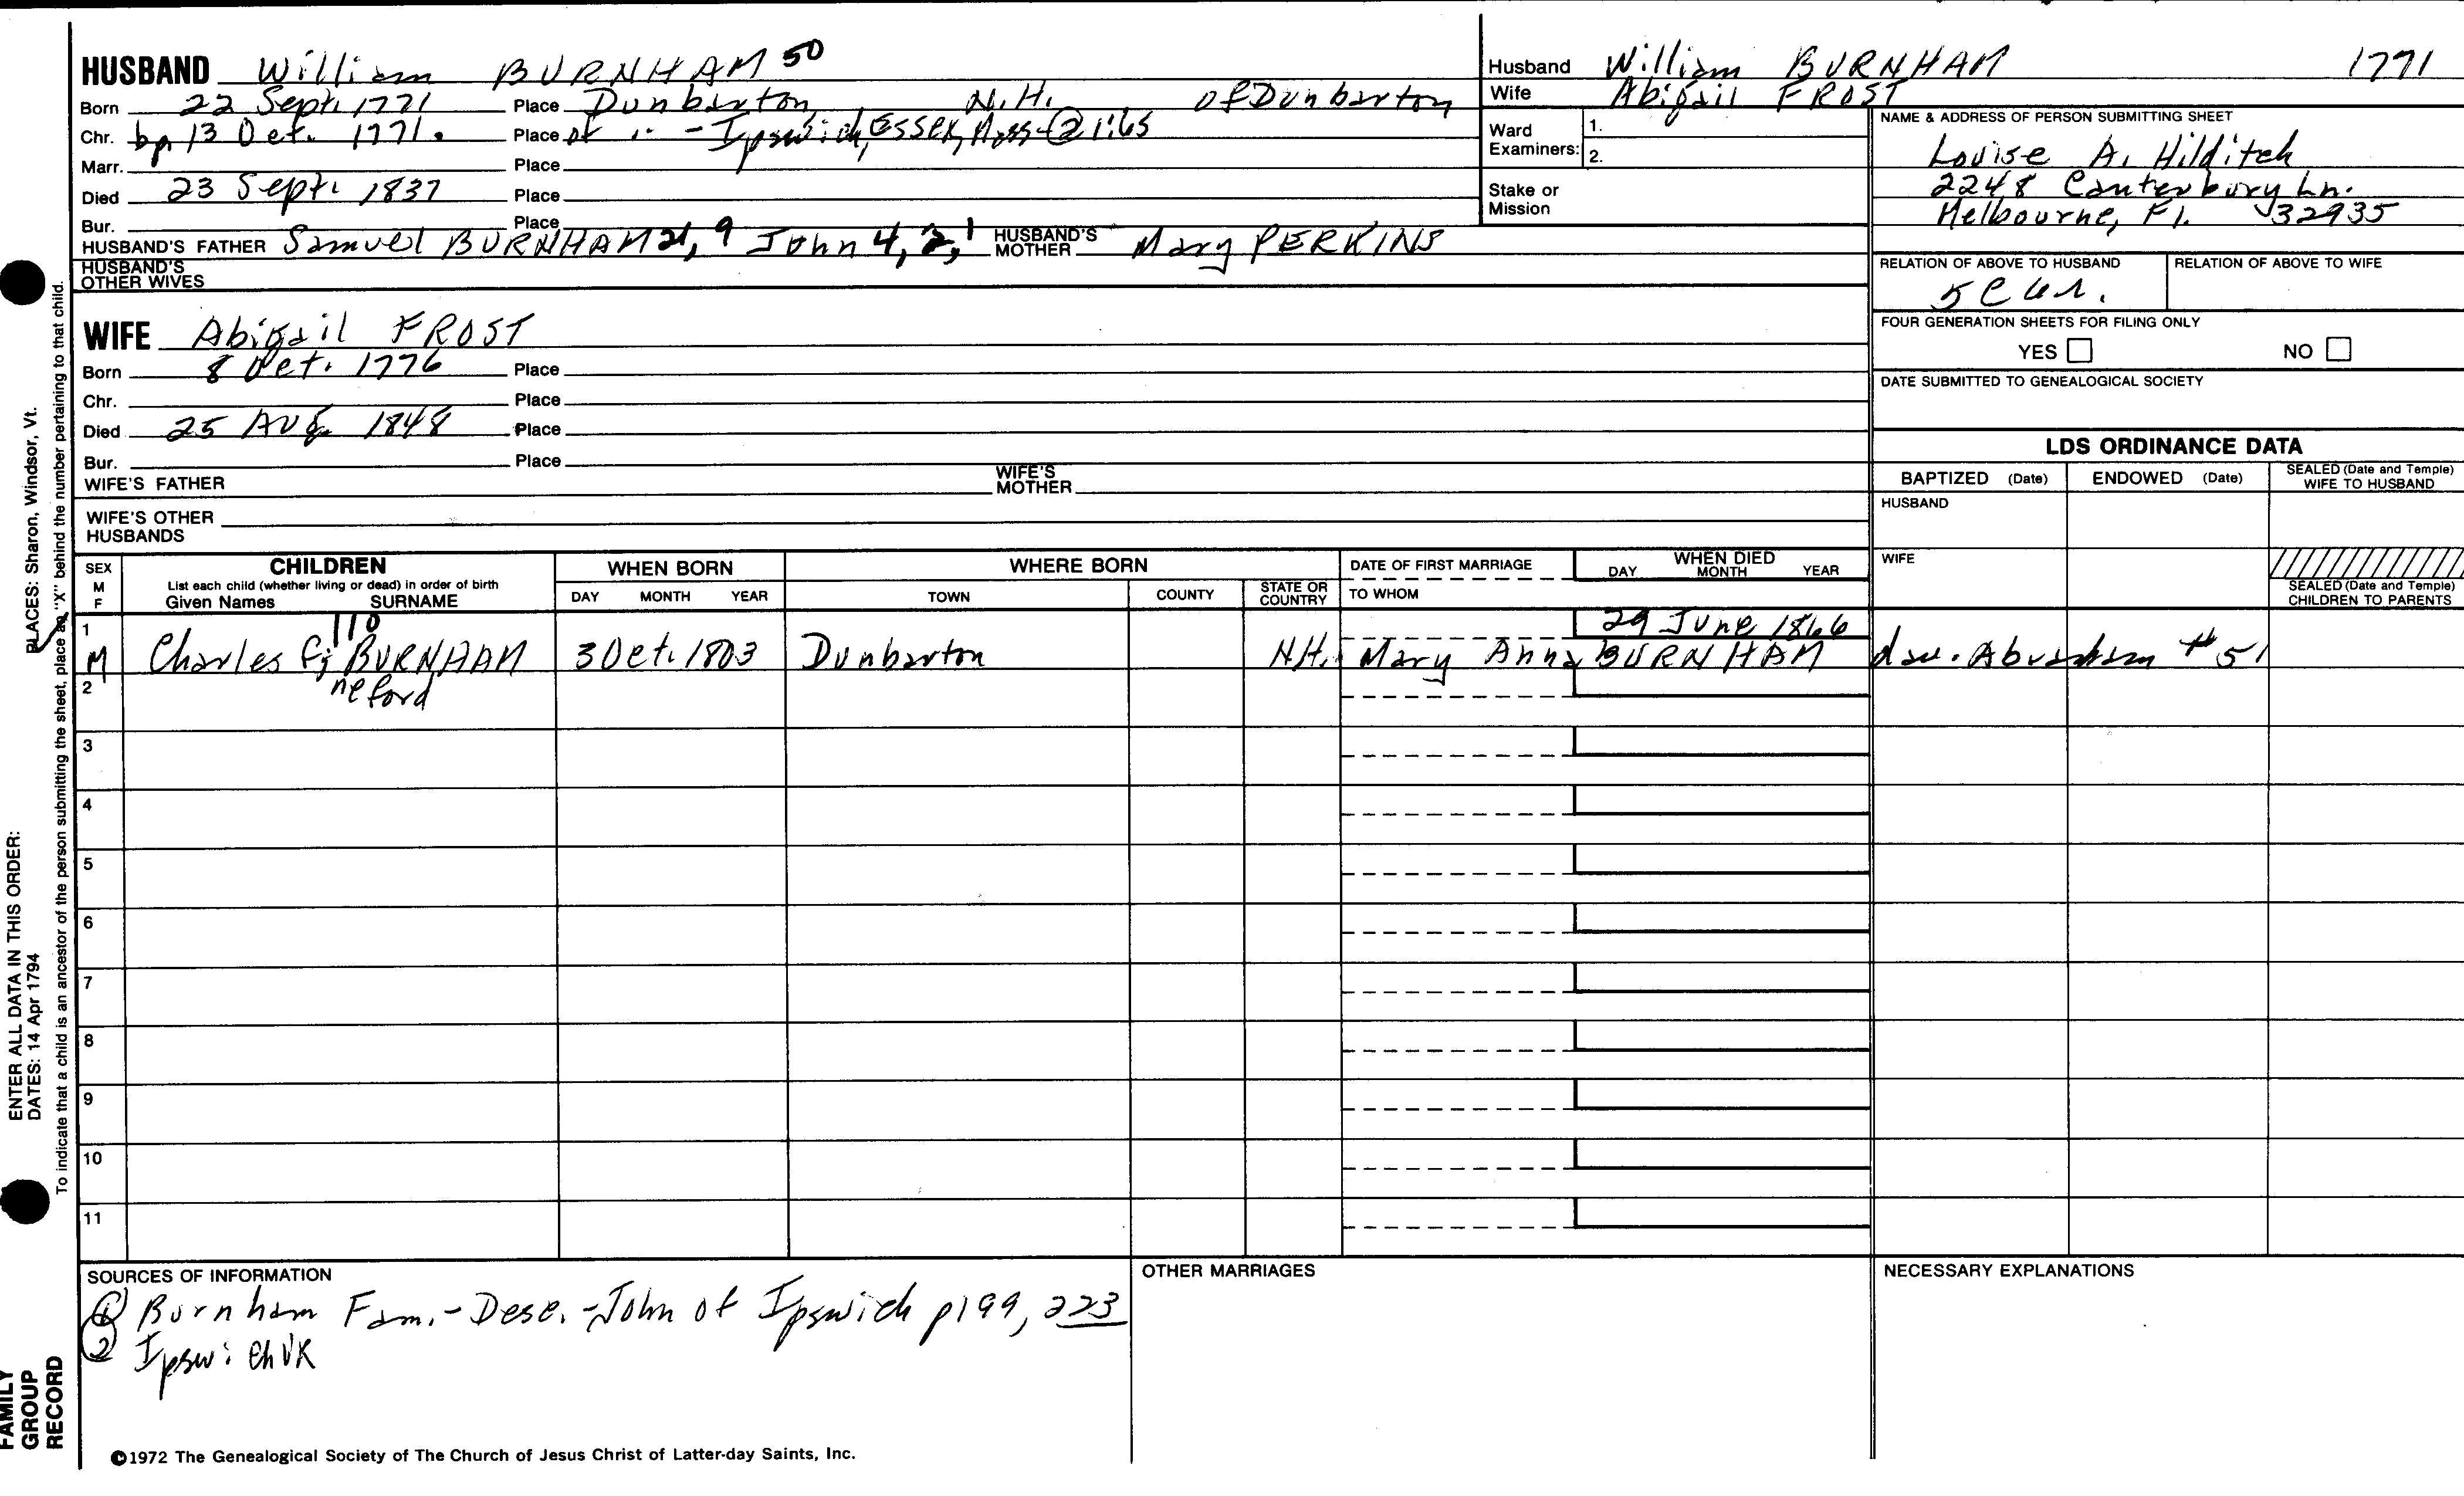 HUSBAND William BURNHAM 50
Born 22 Sept. 1771 Place Dunbarton N.H. of Dunbarton
Chr. bp 13 Oct. 1771. Place or - Ipswich, Essex, Mass-② 1:65
Marr. Place
Died 23 Sept. 1837 Place
Bur. Place
HUSBAND'S FATHER Samuel BURNHAM 21, 9 John 4, 2, 1 HUSBAND'S MOTHER Mary PERKINS
HUSBAND'S OTHER WIVES
WIFE Abigail FROST
Born 8 Oct. 1776 Place
Chr. Place
Died 25 Aug. 1848 Place
Bur. Place
WIFE'S FATHER WIFE'S MOTHER
WIFE'S OTHER HUSBANDS
Husband William BURNHAM 1771
Wife Abigail FROST
Ward Examiners: 1.
2.
Stake or Mission
NAME & ADDRESS OF PERSON SUBMITTING SHEET
Louise A. Hilditch
2248 Canterbury Ln.
Melbourne, Fl. 32935
RELATION OF ABOVE TO HUSBAND RELATION OF ABOVE TO WIFE
5C 6r.
FOUR GENERATION SHEETS FOR FILING ONLY
YES NO
DATE SUBMITTED TO GENEALOGICAL SOCIETY
LDS ORDINANCE DATA
BAPTIZED (Date) ENDOWED (Date) SEALED (Date and Temple) WIFE TO HUSBAND
HUSBAND
WIFE
SEALED (Date and Temple) CHILDREN TO PARENTS
SEX M F
CHILDREN
List each child (whether living or dead) in order of birth
Given Names SURNAME
WHEN BORN
DAY MONTH YEAR
WHERE BORN
TOWN COUNTY STATE OR COUNTRY
DATE OF FIRST MARRIAGE
TO WHOM
WHEN DIED
DAY MONTH YEAR
1 110 29 June 1866
M Charles G; BURNHAM 3 Oct. 1803 Dunbarton N.H. Mary Anna BURNHAM dau. Abraham #51
2 neford
3
4
5
6
7
8
9
10
11
SOURCES OF INFORMATION
① Burnham Fam.-Desc.-John of Ipswich p199, 223
② Ipswich VR
OTHER MARRIAGES
NECESSARY EXPLANATIONS
©1972 The Genealogical Society of The Church of Jesus Christ of Latter-day Saints, Inc.
FAMILY GROUP RECORD
ENTER ALL DATA IN THIS ORDER:
DATES: 14 Apr 1794
PLACES: Sharon, Windsor, Vt.
To indicate that a child is an ancestor of the person submitting the sheet, place an "X" behind the number pertaining to that child.